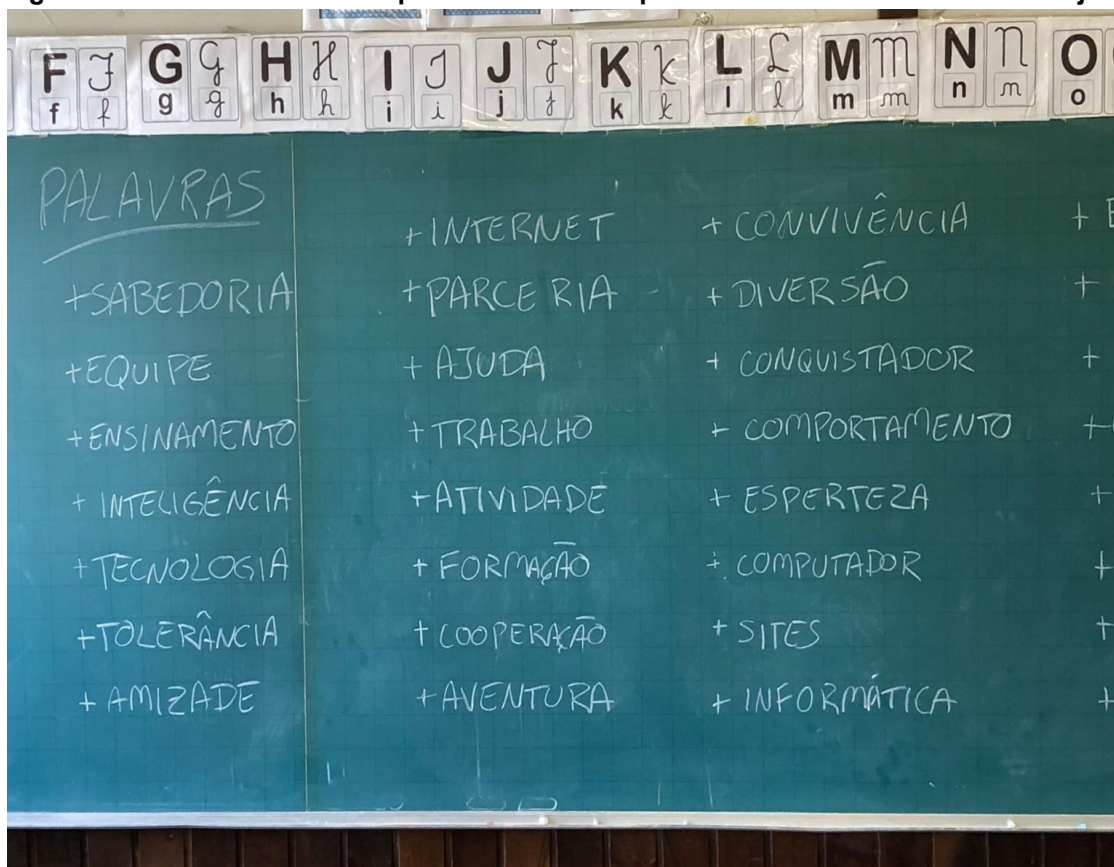 F F G G H H I I J J K K L L M M N N O
f f g g h h i i j j k k l l m m n n o
PALAVRAS
+SABEDORIA
+EQUIPE
+ENSINAMENTO
+ INTELIGÊNCIA
+TECNOLOGIA
+TOLERÂNCIA
+ AMIZADE
+INTERNET
+PARCERIA
+ AJUDA
+TRABALHO
+ATIVIDADE
+ FORMAÇÃO
+COOPERAÇÃO
+AVENTURA
+ CONVIVÊNCIA
+ DIVERSÃO
+ CONQUISTADOR
+ COMPORTAMENTO
+ ESPERTEZA
+ COMPUTADOR
+ SITES
+ INFORMÁTICA